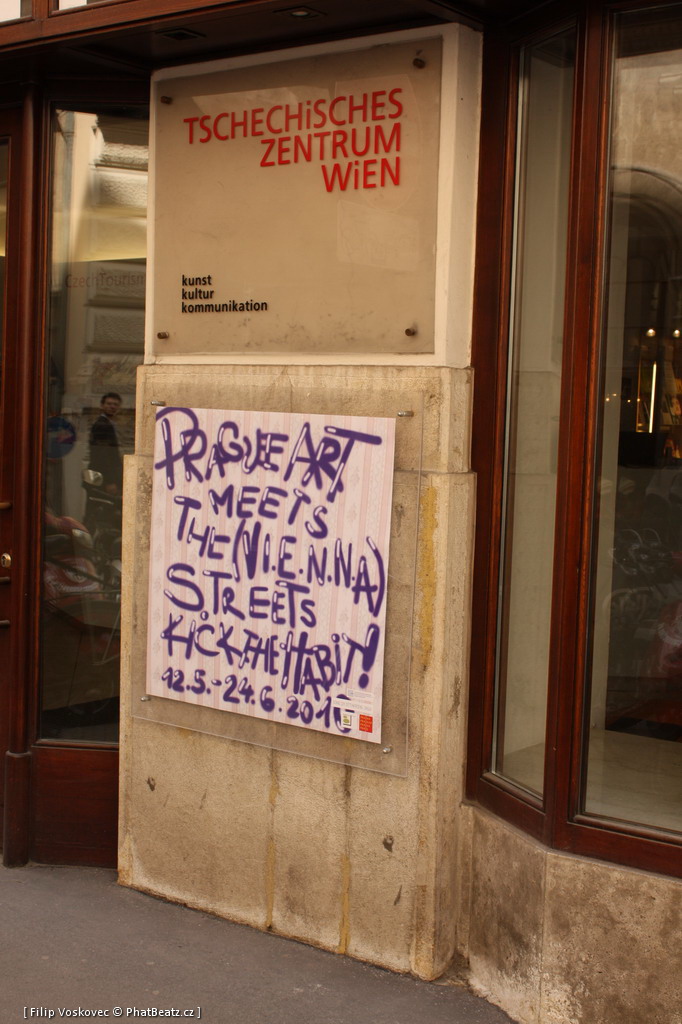 TSCHECHiSCHES
ZENTRUM
WiEN
kunst
kultur
kommunikation
CzechTourism
PRAGUE ART
MEETS
THE (V.I.E.N.N.A)
S.TREETS
KICK THE HABIT!
12.5.-24.6.2010
[ Filip Voskovec © PhatBeatz.cz ]